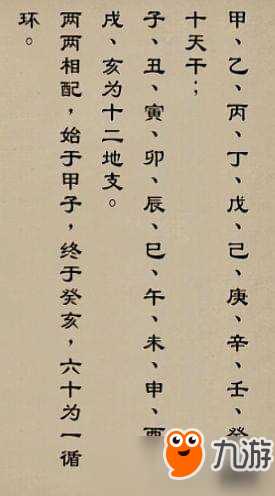 甲、乙、丙、丁、戊、己、庚、辛、壬、癸
十天干；
子、丑、寅、卯、辰、巳、午、未、申、酉
戌、亥为十二地支。
两两相配，始于甲子，终于癸亥，六十为一循
环。
九游